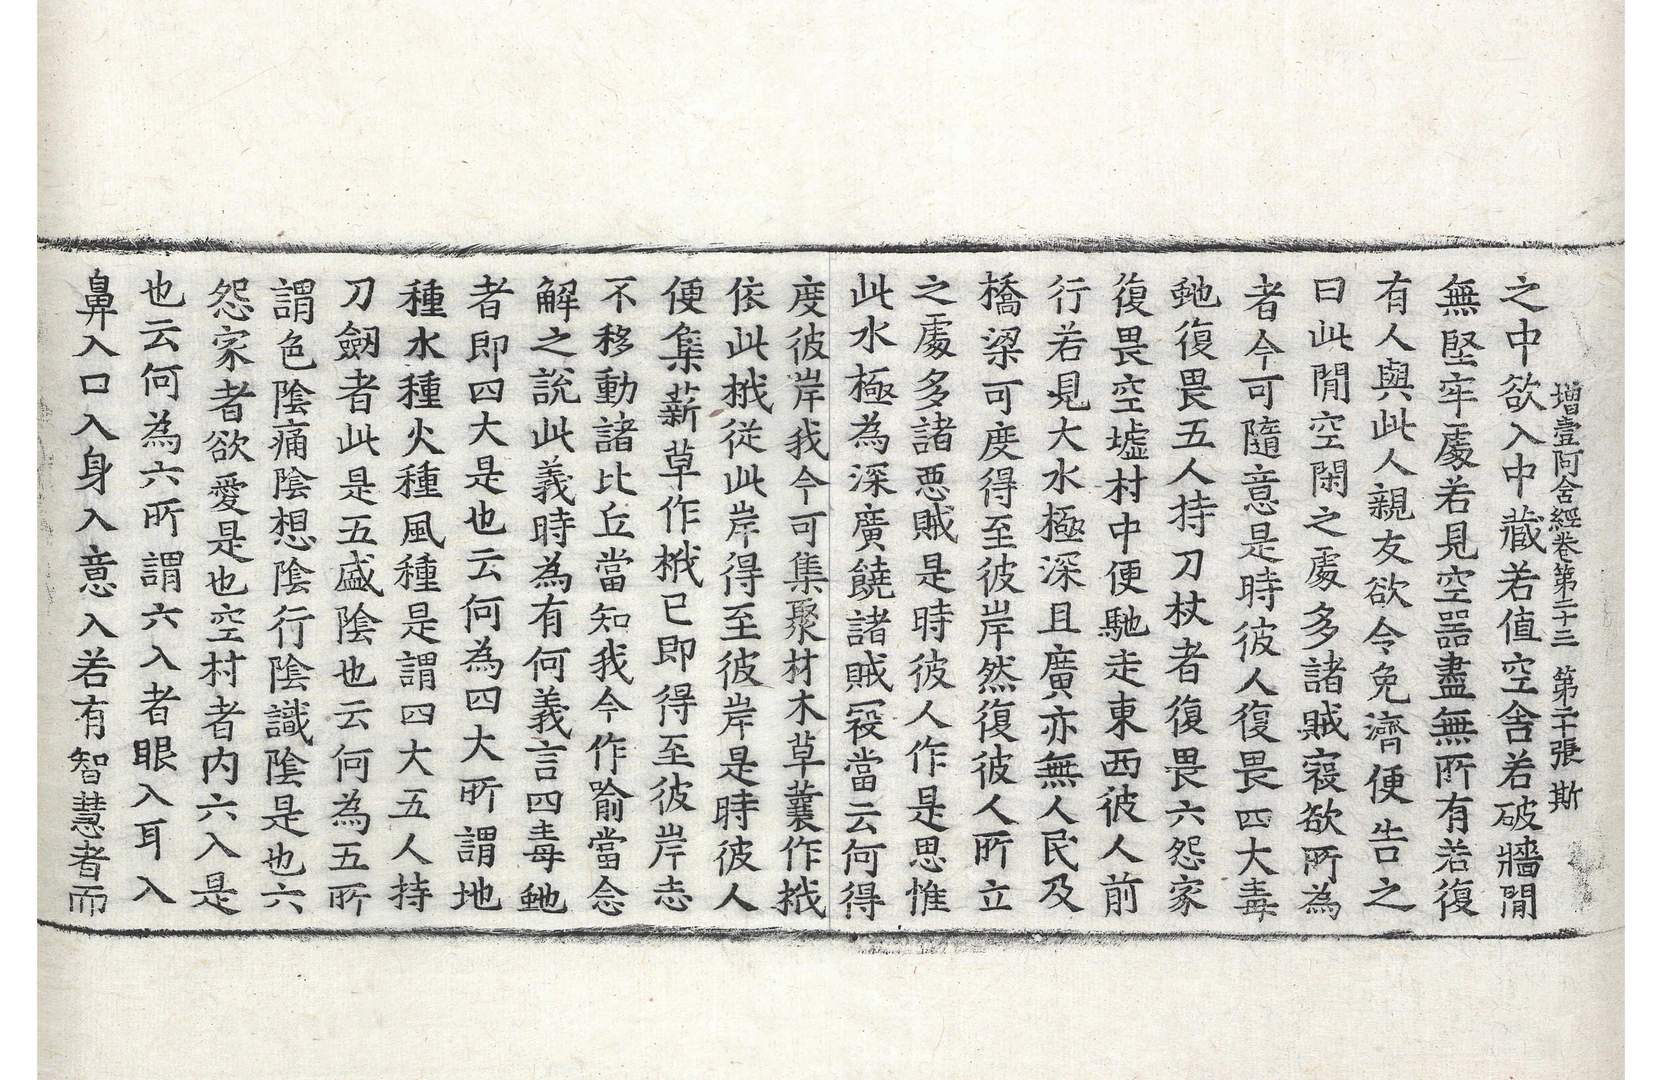 增壹阿含經卷第二十三　第二十張　斯
之中欲入中藏若值空舍若破牆閒
無堅牢處若見空器盡無所有若復
有人與此人親友欲令免濟便告之
曰此閒空閑之處多諸賊寇欲所為
者今可隨意是時彼人復畏四大毒
虵復畏五人持刀杖者復畏六怨家
復畏空墟村中便馳走東西彼人前
行若見大水極深且廣亦無人民及
橋梁可度得至彼岸然復彼人所立
之處多諸惡賊是時彼人作是思惟
此水極為深廣饒諸賊寇當云何得
度彼岸我今可集聚材木草蘘作栰
依此栰從此岸得至彼岸是時彼人
便集薪草作栰已即得至彼岸志
不移動諸比丘當知我今作喻當念
解之說此義時為有何義言四毒虵
者即四大是也云何為四大所謂地
種水種火種風種是謂四大五人持
刀劒者此是五盛陰也云何為五所
謂色陰痛陰想陰行陰識陰是也六
怨家者欲愛是也空村者內六入是
也云何為六所謂六入者眼入耳入
鼻入口入身入意入若有智慧者而